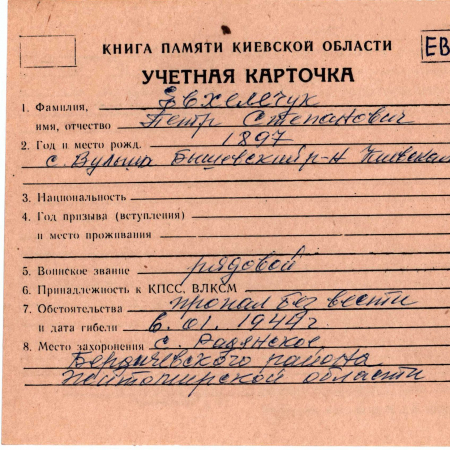 КНИГА ПАМЯТИ КИЕВСКОЙ ОБЛАСТИ
ЕВ
УЧЕТНАЯ КАРТОЧКА
1. Фамилия,
имя, отчество Петр Степанович
2. Год и место рожд. 1897
с. Бышевский р-н Киевская
3. Национальность
4. Год призыва (вступления)
и место проживания
5. Воинское звание рядовой
6. Принадлежность к КПСС, ВЛКСМ
7. Обстоятельства пропал без вести
и дата гибели 6.01.1944г
8. Место захоронения с. Радянское
Бердичевского района
Житомирской области